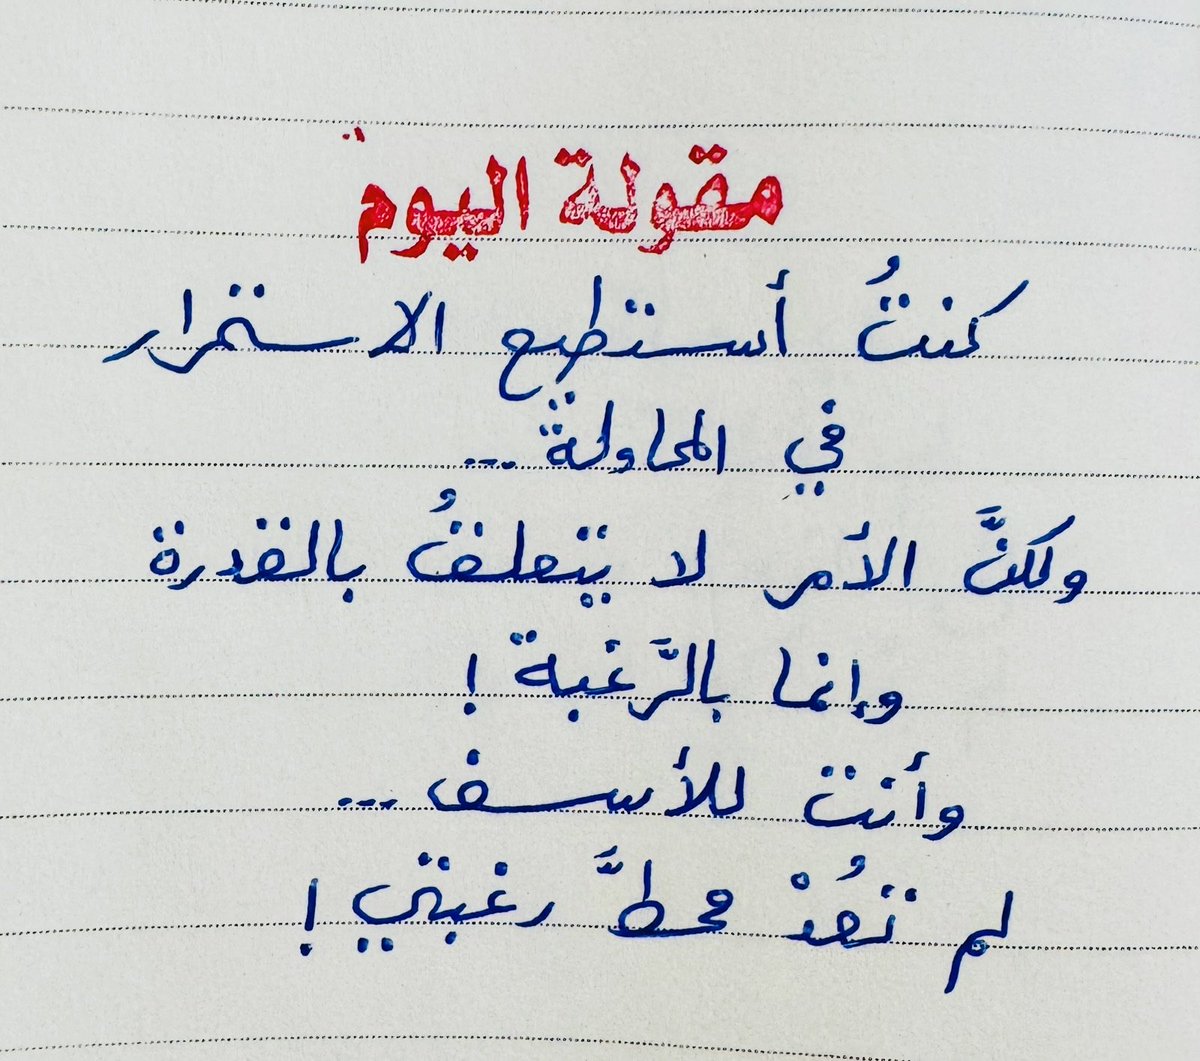 مقولة اليوم
كنتُ أستطيع الاستمرار
في المحاولة ...
ولكنَّ الأمر لا يتعلقُ بالقدرة
وإنما بالرَّغبة !
وأنت للأسف ...
لم تعُدْ محطَّ رغبتي !